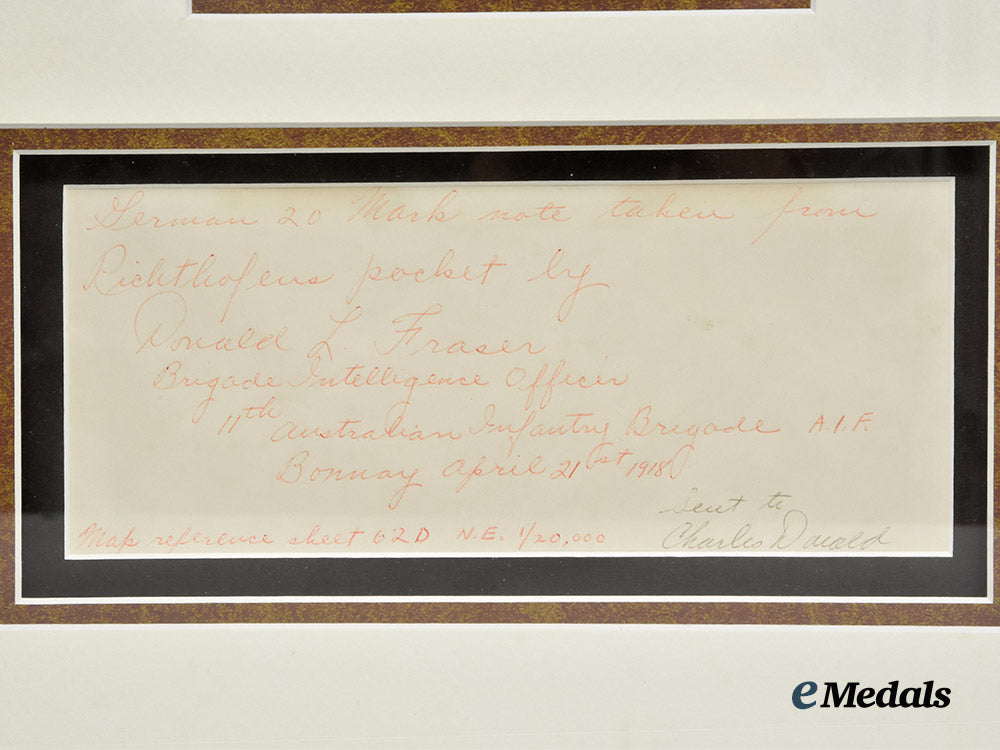 German 20 Mark note taken from
Richthofens pocket by
Donald L. Fraser
Brigade Intelligence Officer
11th Australian Infantry Brigade A.I.F.
Bonnay April 21st 1918
Map reference sheet 62D N.E. 1/20,000
Sent to
Charles Donald
eMedals